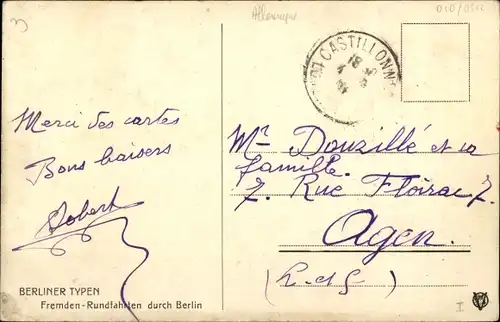 Allemagne
CASTILLONN
18
Merci des cartes
Bons baisers
Robert
Mr Douzillé et sa
famille.
7. Rue Floirac 7.
Agen.
(L-d-G)
BERLINER TYPEN
Fremden-Rundfahrten durch Berlin
I